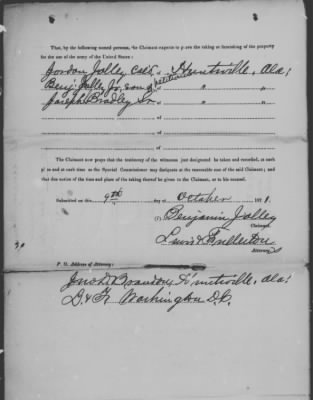 That, by the following named persons, the Claimant expects to prove the taking or furnishing of the property
for the use of the army of the United States:
Jordon Jolley Col'd, of Huntsville, Ala;
Benj. Jolley Jr, son of petitioner " "
Joseph Bradley Sr. of " "
of
of
of
The Claimant now prays that the testimony of the witnesses just designated be taken and recorded, at such
place and at such time as the Special Commissioner may designate at the reasonable cost of the said Claimant; and
that due notice of the time and place of the taking thereof be given to the Claimant, or to his counsel.
Submitted on this 9th day of October 1871.
(7) Benjamin Jolley
Claimant.
Lewis & Fullerton
Attorney's
P. O. Address of Attorney:
Brandon, Huntsville, Ala;
L. & F. Washington D.C.